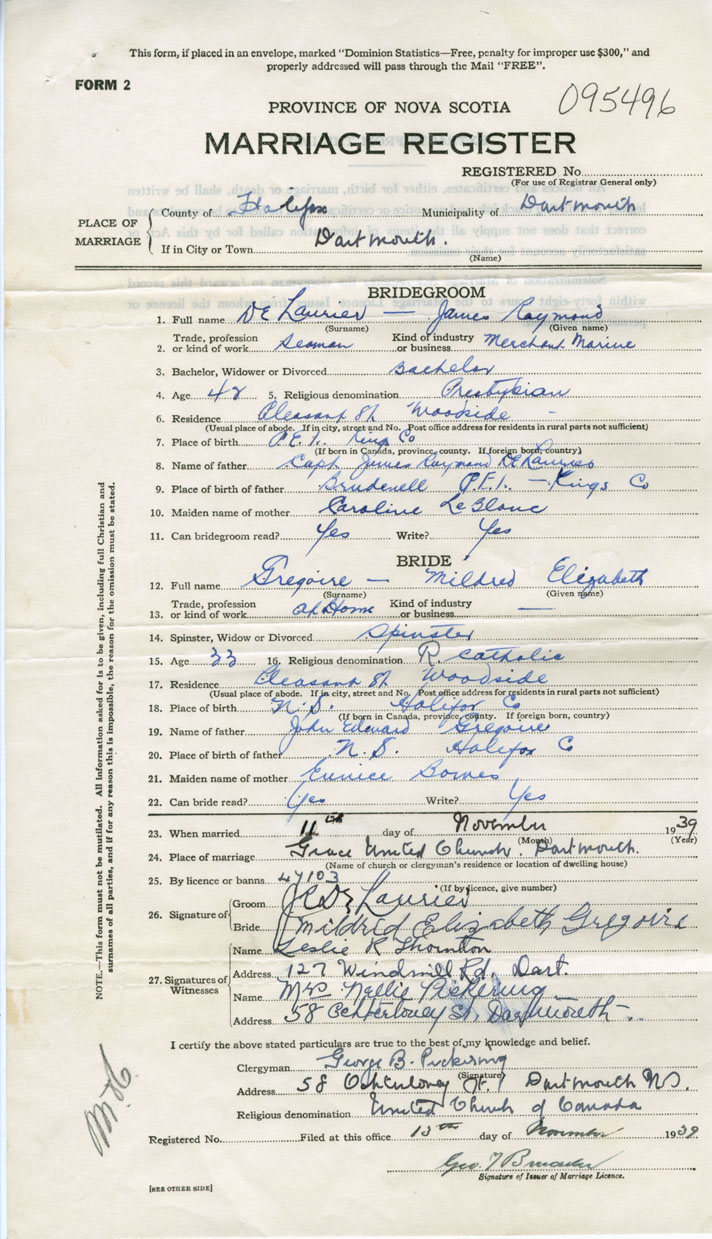 This form, if placed in an envelope, marked "Dominion Statistics—Free, penalty for improper use $300," and
properly addressed will pass through the Mail "FREE".
FORM 2
095496
PROVINCE OF NOVA SCOTIA
MARRIAGE REGISTER
REGISTERED No.
(For use of Registrar General only)
PLACE OF MARRIAGE
County of Halifax Municipality of Dartmouth
If in City or Town Dartmouth.
(Name)
BRIDEGROOM
1. Full name DE Laurier — James Raymond
(Surname) (Given name)
2. Trade, profession or kind of work Seaman Kind of industry or business Merchant Marine
3. Bachelor, Widower or Divorced Bachelor
4. Age 42 5. Religious denomination
6. Residence Pleasant St Woodside
(Usual place of abode. If in city, street and No. Post office address for residents in rural parts not sufficient)
7. Place of birth P.E.I. King Co
(If born in Canada, province, county. If foreign born, country)
8. Name of father Capt James Raymond DE Laurier
9. Place of birth of father Brudenell P.E.I. — Kings Co
10. Maiden name of mother Caroline LeBlanc
11. Can bridegroom read? Yes Write? Yes
BRIDE
12. Full name Gregoire — Mildred Elizabeth
(Surname) (Given name)
13. Trade, profession or kind of work At Home Kind of industry or business —
14. Spinster, Widow or Divorced Spinster
15. Age 33 16. Religious denomination R. Catholic
17. Residence Pleasant St Woodside
(Usual place of abode. If in city, street and No. Post office address for residents in rural parts not sufficient)
18. Place of birth N.S. Halifax Co
(If born in Canada, province, county. If foreign born, country)
19. Name of father John Edward Gregoire
20. Place of birth of father N.S. Halifax C
21. Maiden name of mother Eunice
22. Can bride read? Yes Write? Yes
23. When married 11th day of November 1939
(Month) (Year)
24. Place of marriage Grace United Church. Dartmouth.
(Name of church or clergyman's residence or location of dwelling house)
25. By licence or banns 47103
(If by licence, give number)
26. Signature of Groom J R De Laurier
Bride Mildred Elizabeth Gregoire
27. Signatures of Witnesses
Name Leslie R Thornton
Address 127 Windmill Rd, Dart.
Name Mrs Nellie Pickering
Address 58 St. Dartmouth
I certify the above stated particulars are true to the best of my knowledge and belief.
Clergyman George B. Pickering
(Signature)
Address 58 St. Dartmouth N.S.
Religious denomination United Church of Canada
Registered No. Filed at this office 13th day of November 1939
Geo. T
Signature of Issuer of Marriage Licence.
[SEE OTHER SIDE]
NOTE.—This form must not be mutilated. All information asked for is to be given, including full Christian and
surnames of all parties, and if for any reason this is impossible, the reason for the omission must be stated.